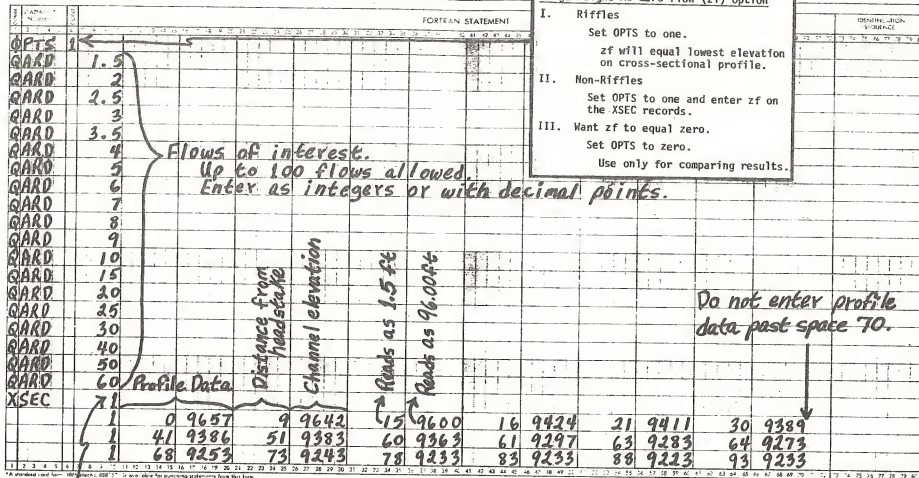 FORTRAN STATEMENT
I. Riffles
Set OPTS to one.
zf will equal lowest elevation
on cross-sectional profile.
II. Non-Riffles
Set OPTS to one and enter zf on
the XSEC records.
III. Want zf to equal zero.
Set OPTS to zero.
Use only for comparing results.
OPTS 1
QARD 1.5
QARD 2
QARD 2.5
QARD 3
QARD 3.5
QARD 4
QARD 5
QARD 6
QARD 7
QARD 8
QARD 9
QARD 10
QARD 15
QARD 20
QARD 25
QARD 30
QARD 40
QARD 50
QARD 60
Flows of interest.
Up to 100 flows allowed.
Enter as integers or with decimal points.
Profile Data
Distance from
headstake
Channel elevation
Reads as 1.5 ft
Reads as 96.00ft
Do not enter profile
data past space 70.
XSEC 71
1 0 9657 9 9642 15 9600 16 9424 21 9411 30 9389
1 41 9386 51 9383 60 9363 61 9297 63 9283 64 9273
1 68 9253 73 9243 78 9233 83 9233 88 9223 93 9233